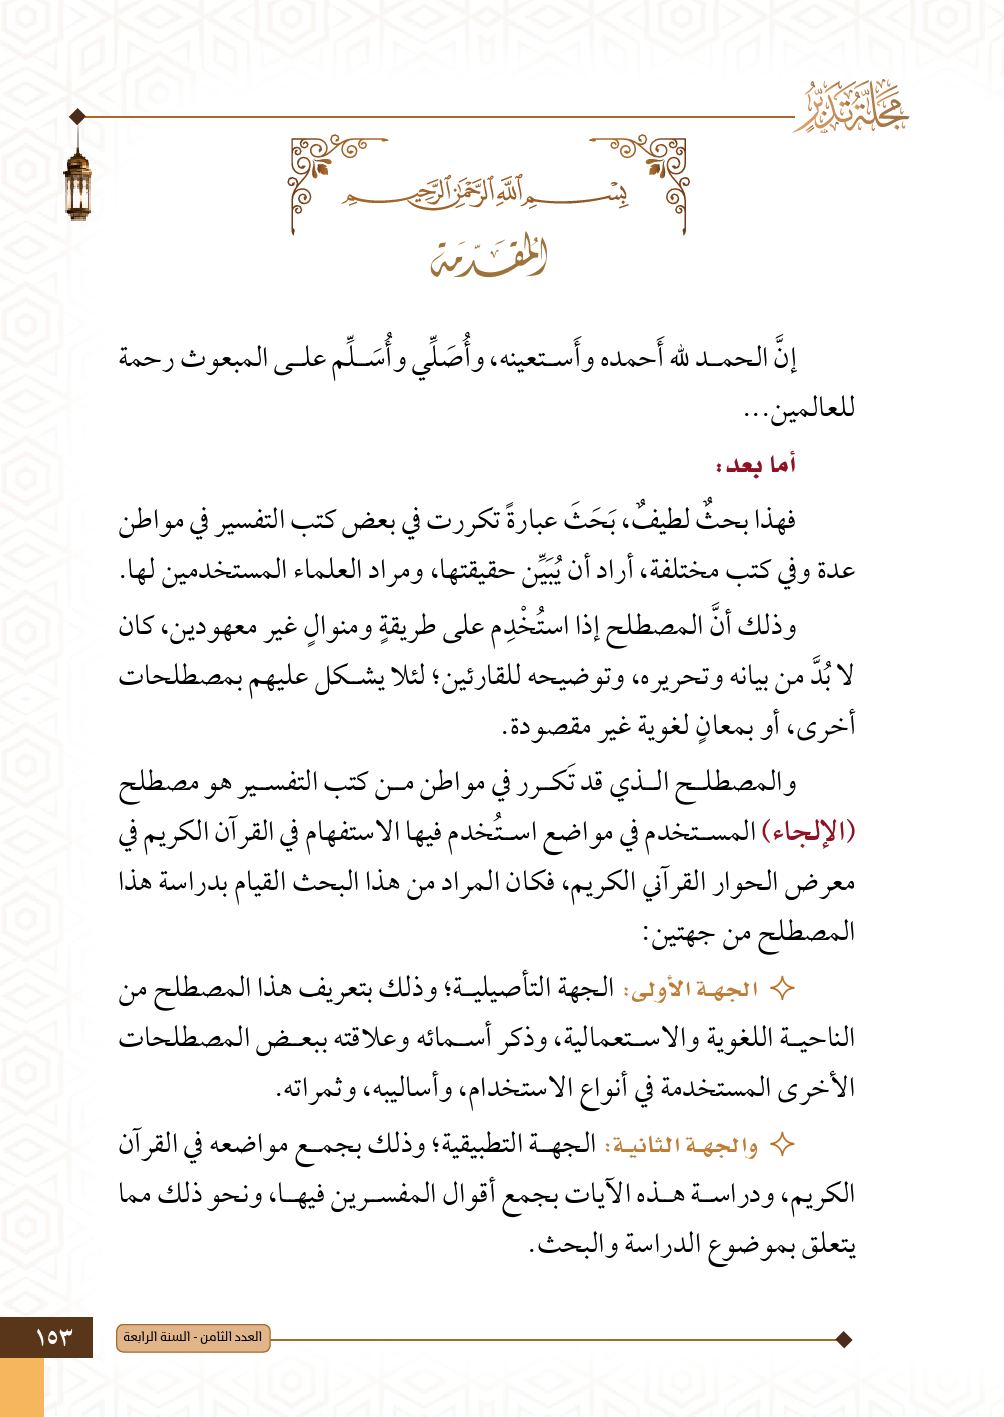 مجلة تدبر
بِسْمِ اللَّهِ الرَّحْمَٰنِ الرَّحِيمِ
المُقَدِّمَة
إنَّ الحمد لله أَحمده وأَستعينه، وأُصَلِّي وأُسَلِّم على المبعوث رحمة
للعالمين...
أما بعد:
فهذا بحثٌ لطيفٌ، بَحَثَ عبارةً تكررت في بعض كتب التفسير في مواطن
عدة وفي كتب مختلفة، أراد أن يُبَيِّن حقيقتها، ومراد العلماء المستخدمين لها.
وذلك أنَّ المصطلح إذا استُخْدِم على طريقةٍ ومنوالٍ غير معهودين، كان
لا بُدَّ من بيانه وتحريره، وتوضيحه للقارئين؛ لئلا يشكل عليهم بمصطلحات
أخرى، أو بمعانٍ لغوية غير مقصودة.
والمصطلح الذي قد تَكرر في مواطن من كتب التفسير هو مصطلح
(الإلجاء) المستخدم في مواضع استُخدم فيها الاستفهام في القرآن الكريم في
معرض الحوار القرآني الكريم، فكان المراد من هذا البحث القيام بدراسة هذا
المصطلح من جهتين:
الجهة الأولى: الجهة التأصيلية؛ وذلك بتعريف هذا المصطلح من
الناحية اللغوية والاستعمالية، وذكر أسمائه وعلاقته ببعض المصطلحات
الأخرى المستخدمة في أنواع الاستخدام، وأساليبه، وثمراته.
والجهة الثانية: الجهة التطبيقية؛ وذلك بجمع مواضعه في القرآن
الكريم، ودراسة هذه الآيات بجمع أقوال المفسرين فيها، ونحو ذلك مما
يتعلق بموضوع الدراسة والبحث.
العدد الثامن - السنة الرابعة
١٥٣